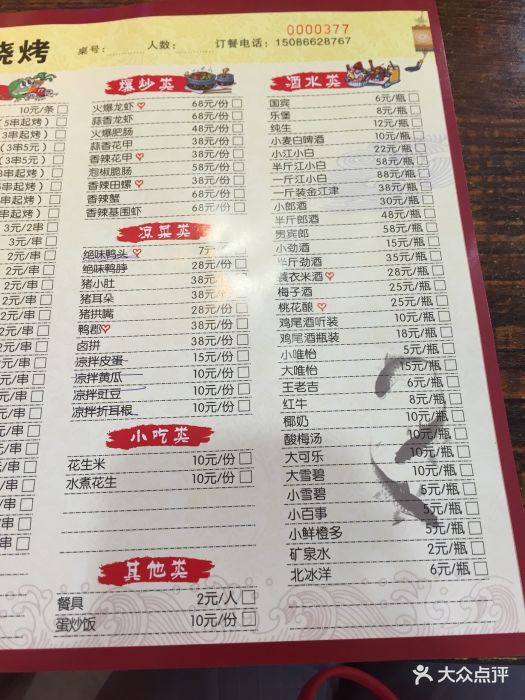 烧烤
0000377
桌号: 人数: 订餐电话: 15086628767
10元/条
(5串起烤)
3串起烤)
(3串5元)
3串起烤)
3串起烤)
3串起烤)
3元/2串
3元/串
2元/串
2元/串
2元/串
爆炒类
火爆龙虾 68元/份
蒜香龙虾 68元/份
火爆肥肠 48元/份
蒜香花甲 38元/份
香辣花甲 38元/份
泡椒脆肠 58元/份
香辣田螺 38元/份
香辣蟹 68元/份
香辣基围虾 68元/份
凉菜类
绝味鸭头 7元
绝味鸭脖 28元/份
猪小肚 38元/份
猪耳朵 38元/份
猪拱嘴 28元/份
鸭郡 38元/份
卤拼 38元/份
凉拌皮蛋 15元/份
凉拌黄瓜 10元/份
凉拌豇豆 10元/份
凉拌折耳根 10元/份
小吃类
花生米 10元/份
水煮花生 10元/份
其他类
餐具 2元/人
蛋炒饭 10元/份
酒水类
国宾 6元/瓶
乐堡 8元/瓶
纯生 12元/瓶
小麦白啤酒 10元/瓶
小江小白 22元/瓶
半斤江小白 58元/瓶
一斤江小白 88元/瓶
一斤装金江津 38元/瓶
小郎酒 30元/瓶
半斤郎酒 48元/瓶
贵宾郎 58元/瓶
小劲酒 15元/瓶
半斤劲酒 35元/瓶
蓑衣米酒 28元/瓶
梅子酒 25元/瓶
桃花酿 25元/瓶
鸡尾酒听装 10元/瓶
鸡尾酒瓶装 18元/瓶
小唯怡 5元/瓶
大唯怡 15元/瓶
王老吉 6元/瓶
红牛 8元/瓶
椰奶 10元/瓶
酸梅汤 10元/瓶
大可乐 10元/瓶
大雪碧 10元/瓶
小雪碧 5元/瓶
小百事 5元/瓶
小鲜橙多 5元/瓶
矿泉水 2元/瓶
北冰洋 6元/瓶
大众点评